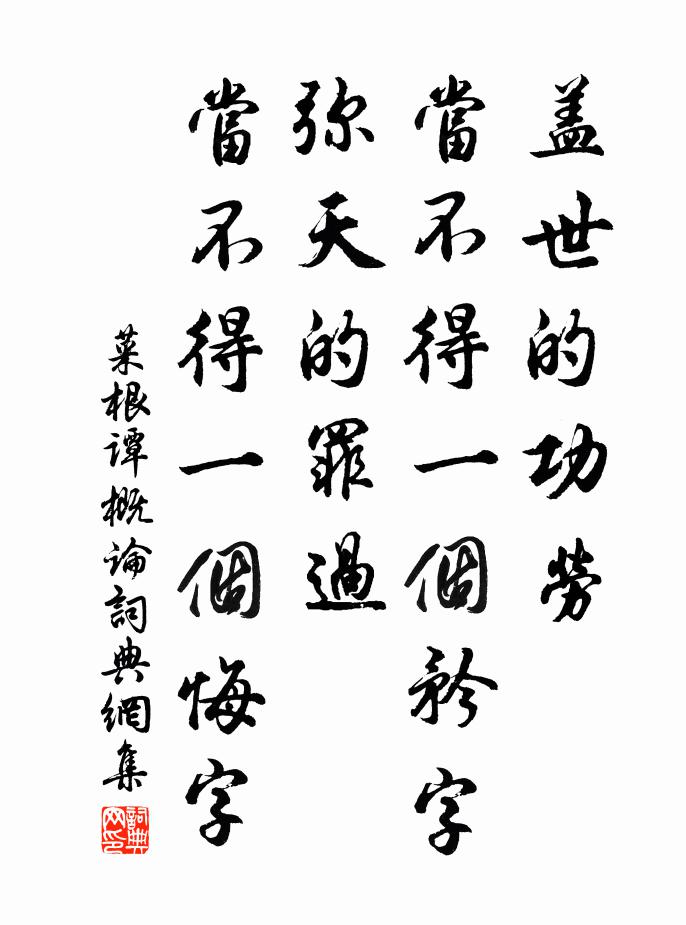 盖世的功勞
當不得一個矜字
弥天的罪過
當不得一個悔字
菜根谭概论詞典網集
詞典
网印